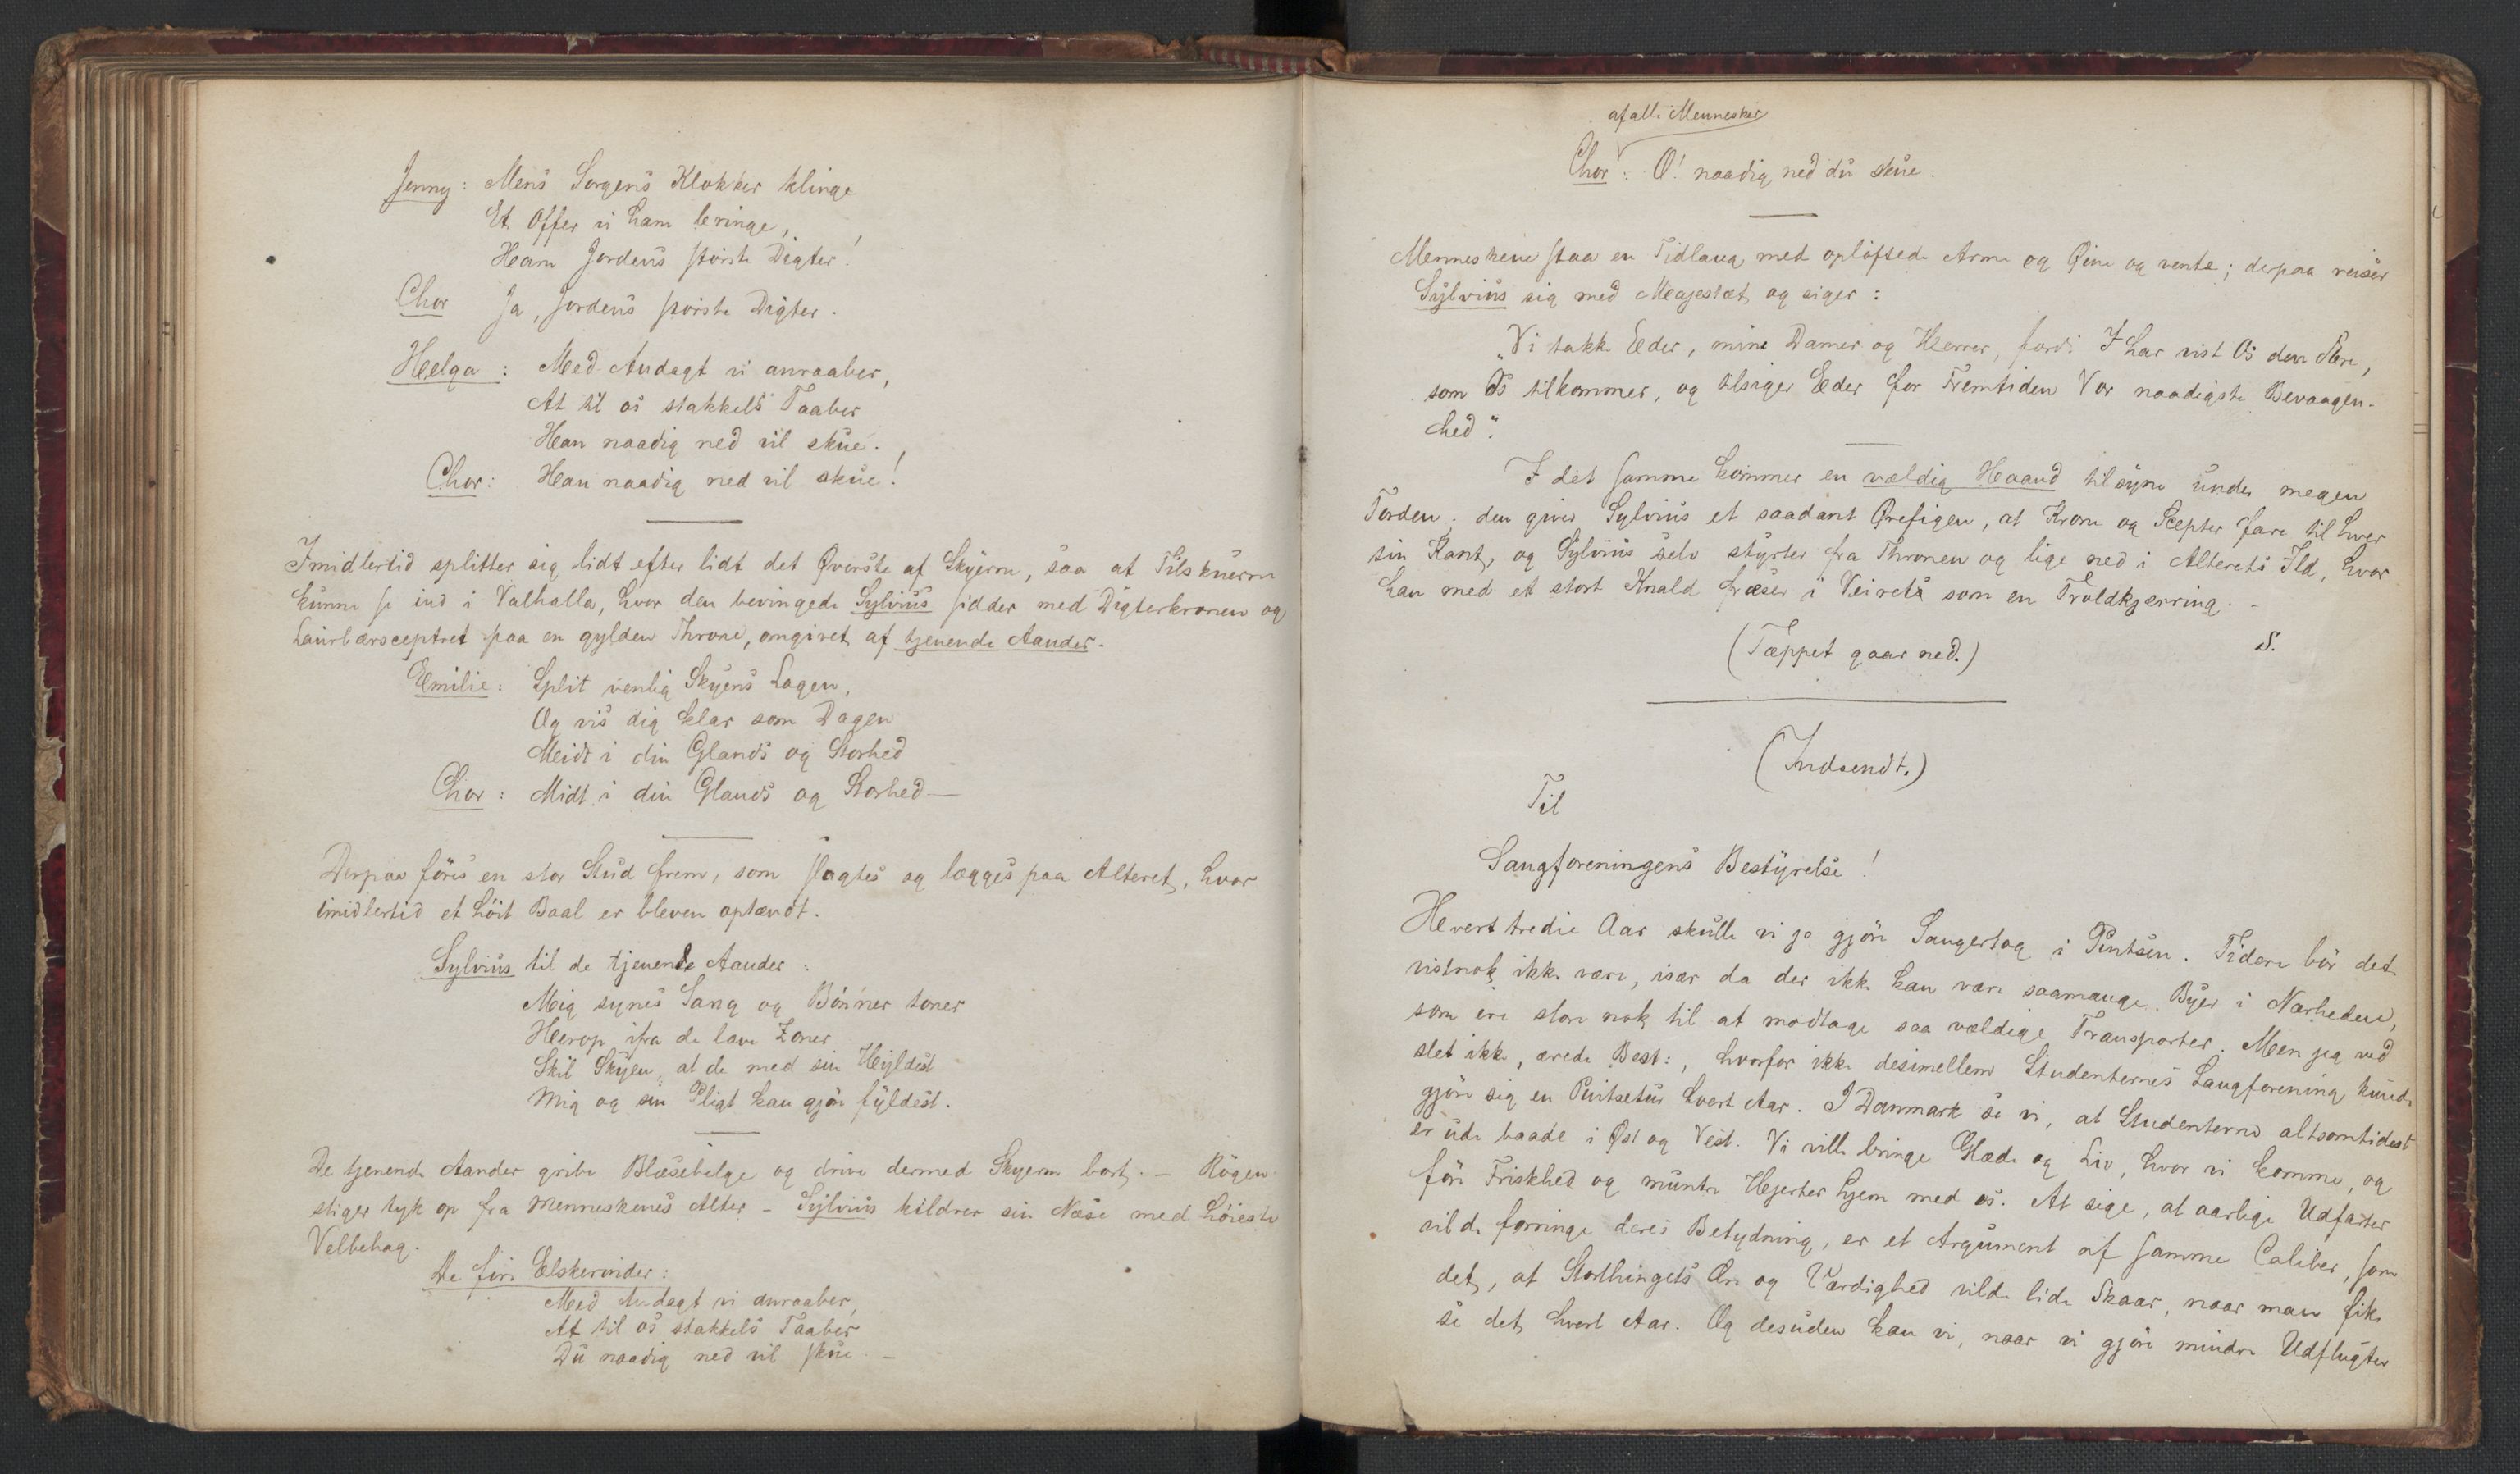 Jenny: Mens Sorgens Klokker klinge
Et Offer vi ham bringe,
Ham Jordens störste Digter!
Chor Ja, Jordens störste Digter.
Helga: Med Andagt vi anraaber,
At til os stakkels Taaber
Han naadig ned vil skue.
Chor: Han naadig ned vil skue!
Imidlertid splitter sig lidt efter lidt det Øverste af Skyerne, saa at Tilskuerne
kunne se ind i Valhalla, hvor den bevingede Sylvius sidder med Digterkronen og
Laurbærsceptret paa en gylden Throne, omgivet af tjenende Aander.
Emilie: Split venlig Skyens Lagen,
Og vis dig klar som Dagen
Midt i din Glands og Storhed
Chor: Midt i din Glands og Storhed—
Derpaa föres en stor Stud frem, som slagtes og lægges paa Alteret, hvor
imidlertid et höit Baal er bleven optændt.
Sylvius til de tjenende Aander:
Mig synes Sang og Bönner toner
Herop ifra de lave Zoner
Skil Skyen, at de med sin Hyldest
Mig og sin Pligt kan gjöre fyldest.
De tjenende Aander gribe Blæsebelge og drive dermed Skyerne bort. — Rögen
stiger tyk op fra Menneskenes Alter — Sylvius kildrer sin Næse med höieste
Velbehag.
De fire Elskerinder:
Med Andagt vi anraaber,
At til os stakkels Taaber
Du naadig ned vil skue. —
af alle Mennesker
Chor: O! naadig ned du skue.
Menneskene staa en Tidlang med oplöftede Arme og Öine og vente; derpaa reiser
Sylvius sig med Majestæt og siger:
„Vi takke Eder, mine Damer og Herrer, fordi I har vist Os den Ære,
som Os tilkommer, og tilsiger Eder for Fremtiden Vor naadigste Bevaagen-
hed".
I det samme kommer en vældig Haand tilsyne under megen
Torden; den giver Sylvius et saadant Örefigen, at Krone og Scepter fare til hver
sin Kant, og Sylvius selv styrter fra Thronen og lige ned i Alterets Ild, hvor
han med et stort Knald fræser i Veiret som en Troldkjærring. —
S.
(Tæppet gaar ned.)
(Indsendt.)
Til
Sangforeningens Bestyrelse!
Hvert tredie Aar skulle vi jo gjöre Sangertog i Pintsen. Tidere bör det
vistnok ikke være, især da der ikke kan være saamange Byer i Nærheden,
som ere store nok til at modtage saa vældige Transporter. Men jeg ved
slet ikke, ærede Best:, hvorfor ikke desimellem Studenternes Sangforening kunde
gjöre sig en Pintsetur hvert Aar. I Danmark se vi, at Studenterne altsomtidest
er ude baade i Øst og Vest. Vi ville bringe Glæde og Liv, hvor vi komme, og
före Friskhed og muntre Hjerter hjem med os. At sige, at aarlige Udfarter
vilde forringe deres Betydning, er et Argument af samme Caliber, som
det, at Storthingets Ære og Værdighed vilde lide Skaar, naar man fik
se det hvert Aar. Og desuden kan vi, naar vi gjöre mindre Udflugter